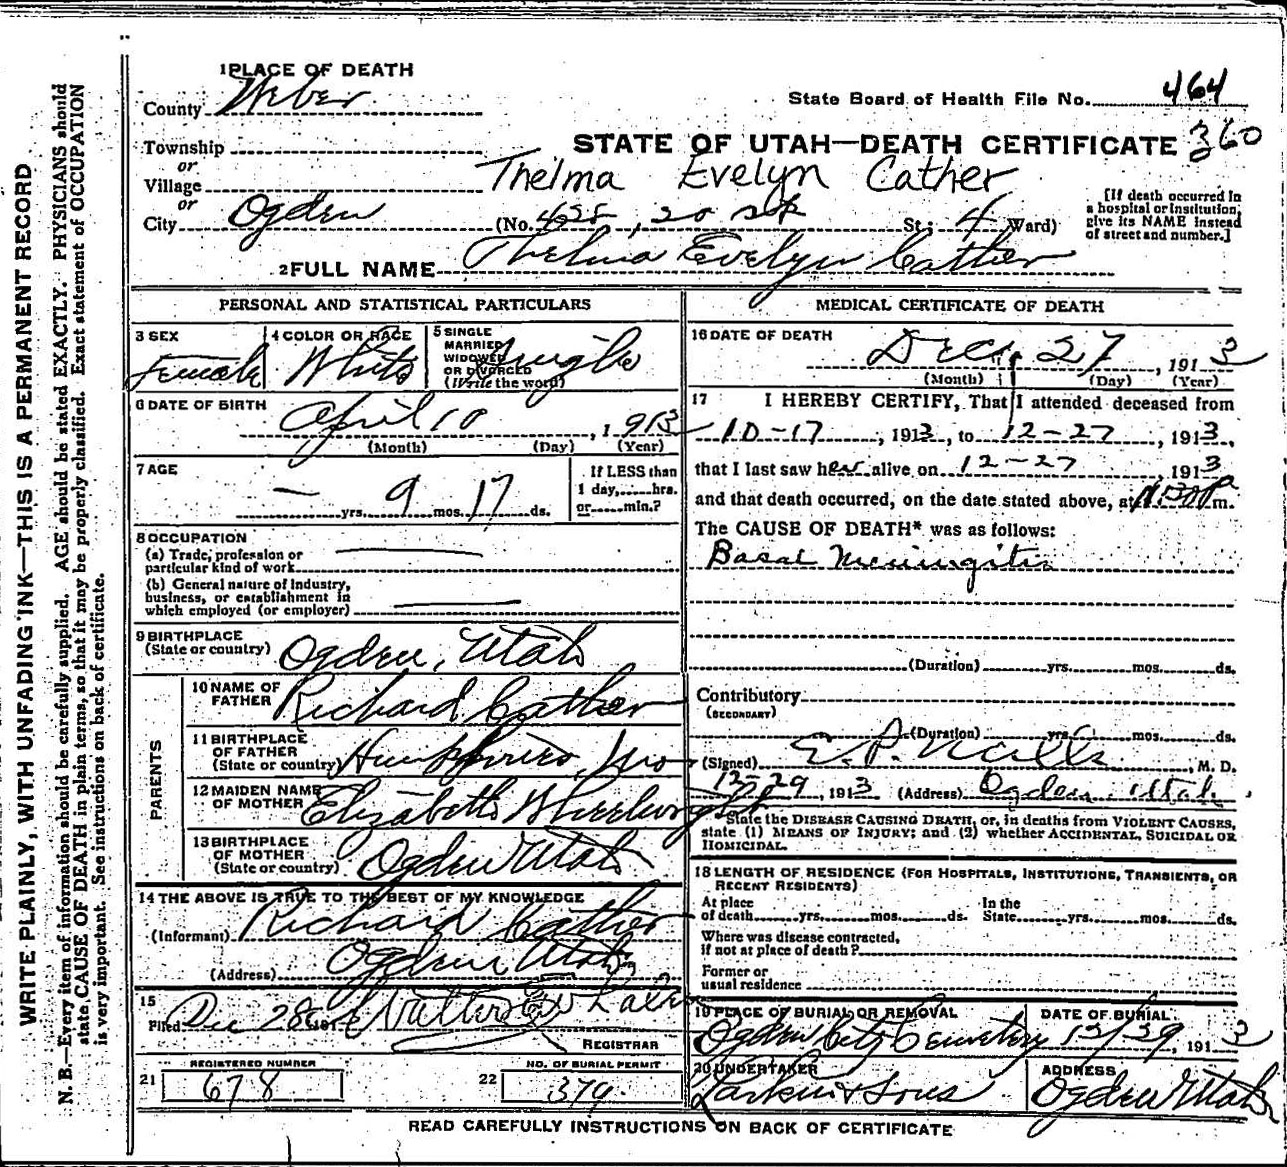 1 PLACE OF DEATH
County Weber
State Board of Health File No. 464
Township
STATE OF UTAH—DEATH CERTIFICATE 360
or
Village
Thelma Evelyn Cather
or
City Ogden (No. 425, 20 St; 4 Ward)
[If death occurred in
a hospital or institution,
give its NAME instead
of street and number.]
2 FULL NAME Thelma Evelyn Cather
PERSONAL AND STATISTICAL PARTICULARS
3 SEX Female
4 COLOR OR RACE White
5 SINGLE
MARRIED
WIDOWED
OR DIVORCED
(Write the word) Single
6 DATE OF BIRTH April 10, 1913
(Month) (Day) (Year)
7 AGE
— yrs. 9 mos. 17 ds.
If LESS than
1 day, hrs.
or min.?
8 OCCUPATION
(a) Trade, profession or
particular kind of work —
(b) General nature of industry,
business, or establishment in
which employed (or employer) —
9 BIRTHPLACE
(State or country) Ogden, Utah
PARENTS
10 NAME OF
FATHER Richard Cather
11 BIRTHPLACE
OF FATHER
(State or country) Humphries, Mo
12 MAIDEN NAME
OF MOTHER Elizabeth Wheelwright
13 BIRTHPLACE
OF MOTHER
(State or country) Ogden Utah
14 THE ABOVE IS TRUE TO THE BEST OF MY KNOWLEDGE
(Informant) Richard Cather
(Address) Ogden Utah
15
Filed Dec 28 Walter
REGISTRAR
REGISTERED NUMBER
21 678
NO. OF BURIAL PERMIT
22 379
MEDICAL CERTIFICATE OF DEATH
16 DATE OF DEATH
Dec. 27, 1913
(Month) (Day) (Year)
17 I HEREBY CERTIFY, That I attended deceased from
10-17, 1913, to 12-27, 1913,
that I last saw her alive on 12-27, 1913
and that death occurred, on the date stated above, at m.
The CAUSE OF DEATH* was as follows:
Basal Meningitis
(Duration) yrs. mos. ds.
Contributory
(SECONDARY)
(Duration) yrs. mos. ds.
(Signed) E. P. Mills, M. D.
12-29, 1913 (Address) Ogden, Utah
*State the DISEASE CAUSING DEATH, or, in deaths from VIOLENT CAUSES,
state (1) MEANS OF INJURY; and (2) whether ACCIDENTAL, SUICIDAL OR
HOMICIDAL.
18 LENGTH OF RESIDENCE (FOR HOSPITALS, INSTITUTIONS, TRANSIENTS, OR
RECENT RESIDENTS)
At place
of death yrs. mos. ds.
In the
State yrs. mos. ds.
Where was disease contracted,
if not at place of death?
Former or
usual residence
19 PLACE OF BURIAL OR REMOVAL
Ogden City Cemetery
DATE OF BURIAL
12/29, 1913
20 UNDERTAKER
Larkin & Sons
ADDRESS
Ogden Utah
READ CAREFULLY INSTRUCTIONS ON BACK OF CERTIFICATE
WRITE PLAINLY, WITH UNFADING INK—THIS IS A PERMANENT RECORD
N. B.—Every item of information should be carefully supplied. AGE should be stated EXACTLY. PHYSICIANS should
state CAUSE OF DEATH in plain terms, so that it may be properly classified. Exact statement of OCCUPATION
is very important. See instructions on back of certificate.